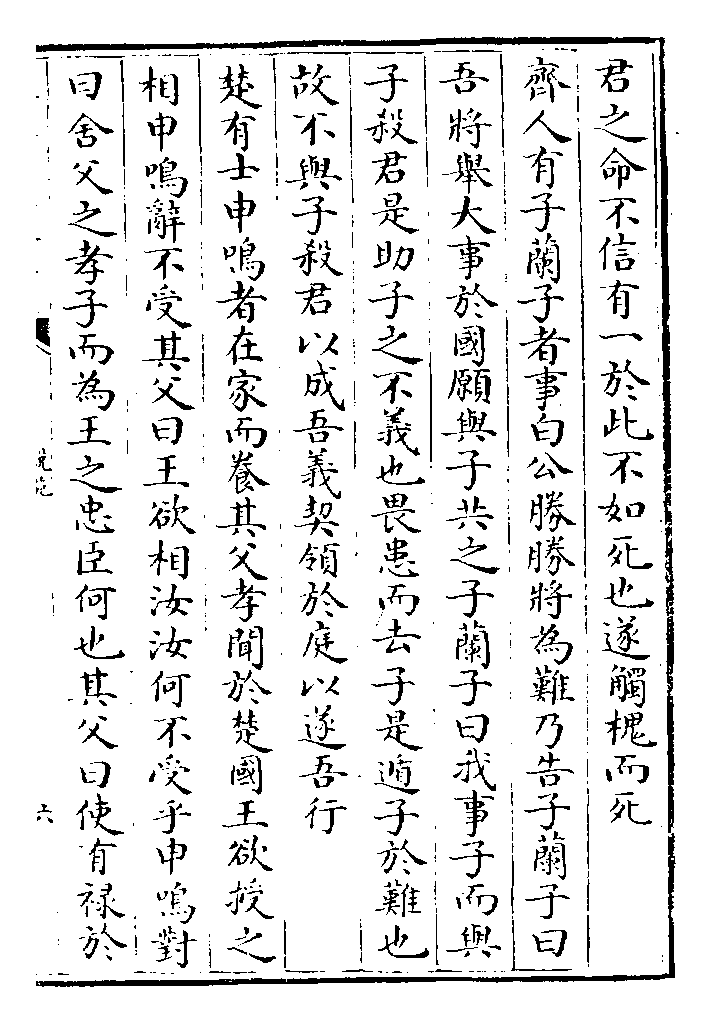 君之命不信有一於此不如死也遂觸槐而死
齊人有子蘭子者事白公勝勝將為難乃告子蘭子曰
吾將舉大事於國願與子共之子蘭子曰我事子而與
子殺君是助子之不義也畏患而去子是遁子於難也
故不與子殺君以成吾義契領於庭以遂吾行
楚有士申鳴者在家而養其父孝聞於楚國王欲授之
相申鳴辭不受其父曰王欲相汝汝何不受乎申鳴對
曰舍父之孝子而為王之忠臣何也其父曰使有祿於
說苑
六